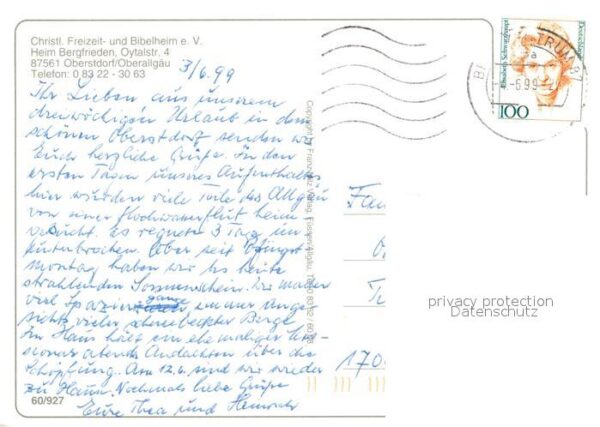 Christl. Freizeit- und Bibelheim e. V.
Heim Bergfrieden, Oytalstr. 4
87561 Oberstdorf/Oberallgäu
Telefon: 0 83 22 - 30 63
3/6.99
Ihr Lieben aus unserem
dreiwöchigen Urlaub in dem
schönen Oberstdorf senden wir
Euch herzliche Grüße. In den
ersten Tagen unseres Aufenthaltes
hier wurden viele Teile des Allgäu
von einer Hochwasserflut heim
gesucht. Es regnete 3 Tage un
unterbrochen. Aber seit Pfingst-
montag haben wir bis heute
strahlenden Sonnenschein. Wir machen
viel Spaziergänge immer ange-
sichts vieler schneebedeckter Berge
Im Haus hält ein ehemaliger Mis-
sionar abends Andachten über die
Schöpfung. Am 12.6. sind wir wieder
zu Hause. Nochmals liebe Grüße
Eure Thea und Heinrich
60/927
Copyright by
Deutschland
100
6.99
Fa
170
privacy protection
Datenschutz